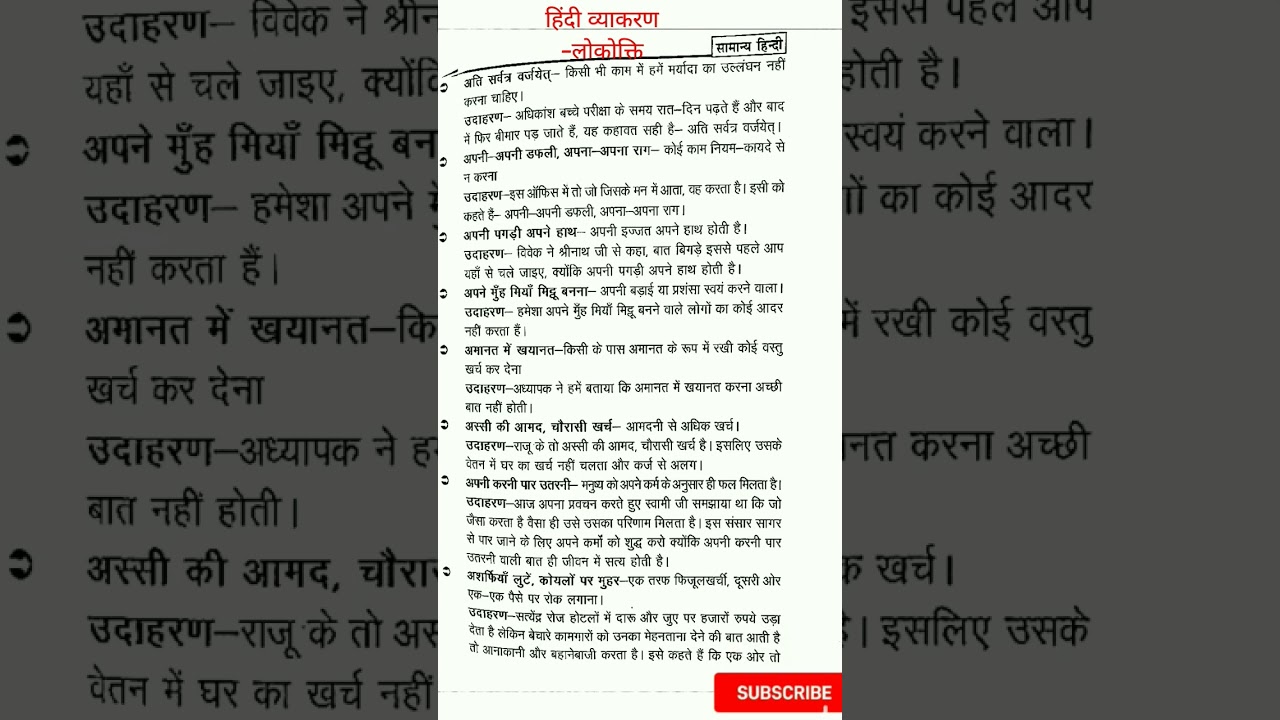 हिंदी व्याकरण
-लोकोक्ति
सामान्य हिन्दी
अति सर्वत्र वर्जयेत्– किसी भी काम में हमें मर्यादा का उल्लंघन नहीं
करना चाहिए।
उदाहरण– अधिकांश बच्चे परीक्षा के समय रात–दिन पढ़ते हैं और बाद
में फिर बीमार पड़ जाते हैं, यह कहावत सही है– अति सर्वत्र वर्जयेत्।
अपनी–अपनी डफली, अपना–अपना राग– कोई काम नियम–कायदे से
न करना
उदाहरण–इस ऑफिस में तो जो जिसके मन में आता, वह करता है। इसी को
कहते हैं– अपनी–अपनी डफली, अपना–अपना राग।
अपनी पगड़ी अपने हाथ– अपनी इज्जत अपने हाथ होती है।
उदाहरण– विवेक ने श्रीनाथ जी से कहा, बात बिगड़े इससे पहले आप
यहाँ से चले जाइए, क्योंकि अपनी पगड़ी अपने हाथ होती है।
अपने मुँह मियाँ मिट्ठू बनना– अपनी बड़ाई या प्रशंसा स्वयं करने वाला।
उदाहरण– हमेशा अपने मुँह मियाँ मिट्ठू बनने वाले लोगों का कोई आदर
नहीं करता हैं।
अमानत में खयानत–किसी के पास अमानत के रूप में रखी कोई वस्तु
खर्च कर देना
उदाहरण–अध्यापक ने हमें बताया कि अमानत में खयानत करना अच्छी
बात नहीं होती।
अस्सी की आमद, चौरासी खर्च– आमदनी से अधिक खर्च।
उदाहरण–राजू के तो अस्सी की आमद, चौरासी खर्च है। इसलिए उसके
वेतन में घर का खर्च नहीं चलता और कर्ज से अलग।
अपनी करनी पार उतरनी– मनुष्य को अपने कर्म के अनुसार ही फल मिलता है।
उदाहरण–आज अपना प्रवचन करते हुए स्वामी जी समझाया था कि जो
जैसा करता है वैसा ही उसे उसका परिणाम मिलता है। इस संसार सागर
से पार जाने के लिए अपने कर्मों को शुद्ध करो क्योंकि अपनी करनी पार
उतरनी वाली बात ही जीवन में सत्य होती है।
अशर्फियाँ लुटें, कोयलों पर मुहर–एक तरफ फिजूलखर्ची, दूसरी ओर
एक–एक पैसे पर रोक लगाना।
उदाहरण–सत्येंद्र रोज होटलों में दारू और जुए पर हजारों रुपये उड़ा
देता है लेकिन बेचारे कामगारों को उनका मेहनताना देने की बात आती है
तो आनाकानी और बहानेबाजी करता है। इसे कहते हैं कि एक ओर तो
SUBSCRIBE